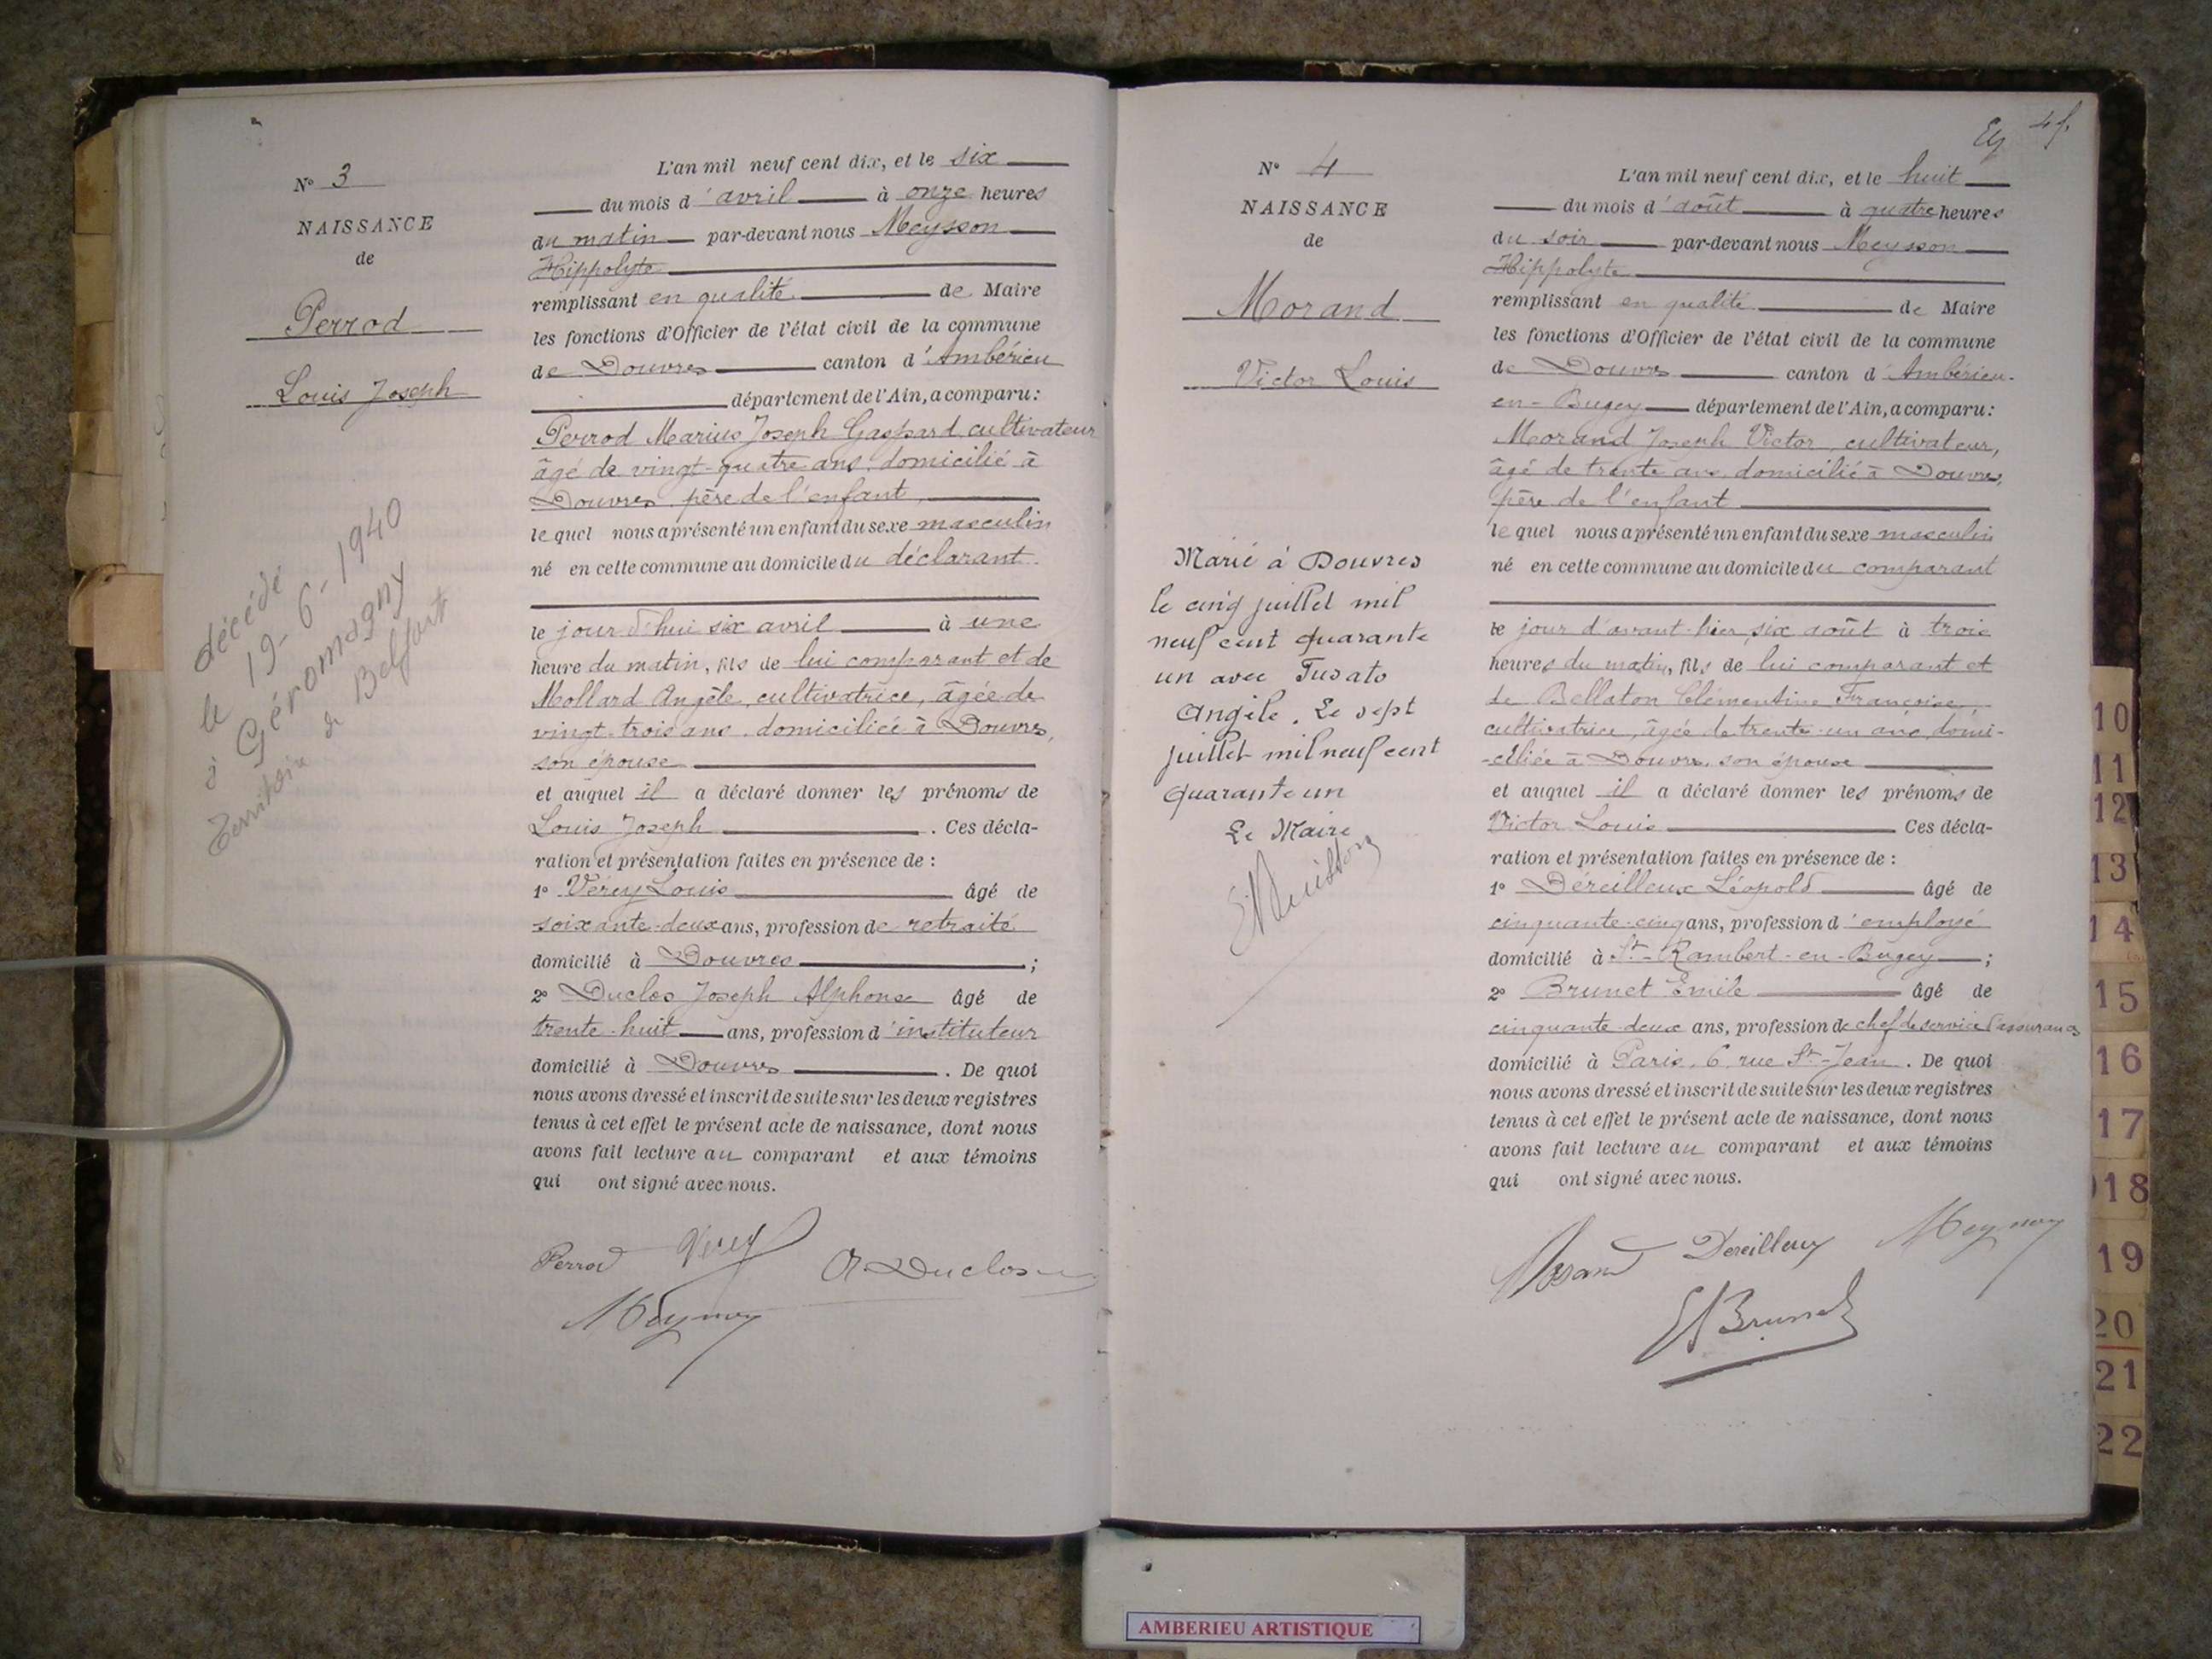 N° 3
NAISSANCE
de
Perrod
Louis Joseph
décédé
le 19-6-1940
à Géromagny
Territoire de Belfort
L'an mil neuf cent dix, et le six
du mois d'avril à onze heures
du matin par-devant nous Meysson
Hippolyte
remplissant en qualité de Maire
les fonctions d'Officier de l'état civil de la commune
de Douvres canton d'Ambérieu
département de l'Ain, a comparu:
Perrod Marius Joseph Gaspard, cultivateur
âgé de vingt-quatre ans, domicilié à
Douvres, père de l'enfant,
lequel nous a présenté un enfant du sexe masculin
né en cette commune au domicile du déclarant
le jour d'hui six avril à une
heure du matin, fils de lui comparant et de
Mollard Angèle, cultivatrice, âgée de
vingt-trois ans, domiciliée à Douvres,
son épouse
et auquel il a déclaré donner les prénoms de
Louis Joseph. Ces décla-
ration et présentation faites en présence de :
1° Vérey Louis âgé de
soixante-deux ans, profession de retraité
domicilié à Douvres ;
2° Duclos Joseph Alphonse âgé de
trente-huit ans, profession d'instituteur
domicilié à Douvres. De quoi
nous avons dressé et inscrit de suite sur les deux registres
tenus à cet effet le présent acte de naissance, dont nous
avons fait lecture au comparant et aux témoins
qui ont signé avec nous.
Perrod Verey A Duclos
Meysson
45
N° 4
NAISSANCE
de
Morand
Victor Louis
Marié à Douvres
le cinq juillet mil
neuf cent quarante
un avec Tusato
Angèle. Le sept
juillet mil neuf cent
quarante un
Le Maire
L'an mil neuf cent dix, et le huit
du mois d'août à quatre heures
du soir par-devant nous Meysson
Hippolyte
remplissant en qualité de Maire
les fonctions d'Officier de l'état civil de la commune
de Douvres canton d'Ambérieu-
en-Bugey département de l'Ain, a comparu:
Morand Joseph Victor, cultivateur,
âgé de trente ans, domicilié à Douvres,
père de l'enfant
lequel nous a présenté un enfant du sexe masculin
né en cette commune au domicile du comparant
le jour d'avant-hier, six août à trois
heures du matin, fils de lui comparant et
de Bellaton Clémentine Françoise,
cultivatrice, âgée de trente-un ans, domi-
-ciliée à Douvres, son épouse
et auquel il a déclaré donner les prénoms de
Victor Louis Ces décla-
ration et présentation faites en présence de :
1° Déreilleux Léopold âgé de
cinquante-cinq ans, profession d'employé
domicilié à St-Rambert-en-Bugey ;
2° Brunet Emile âgé de
cinquante-deux ans, profession de chef de service (assurances
domicilié à Paris, 6 rue St-Jean. De quoi
nous avons dressé et inscrit de suite sur les deux registres
tenus à cet effet le présent acte de naissance, dont nous
avons fait lecture au comparant et aux témoins
qui ont signé avec nous.
Morand Dereilleux Meysson
E Brunet
10
11
12
13
14
15
16
17
18
19
20
21
22
AMBERIEU ARTISTIQUE